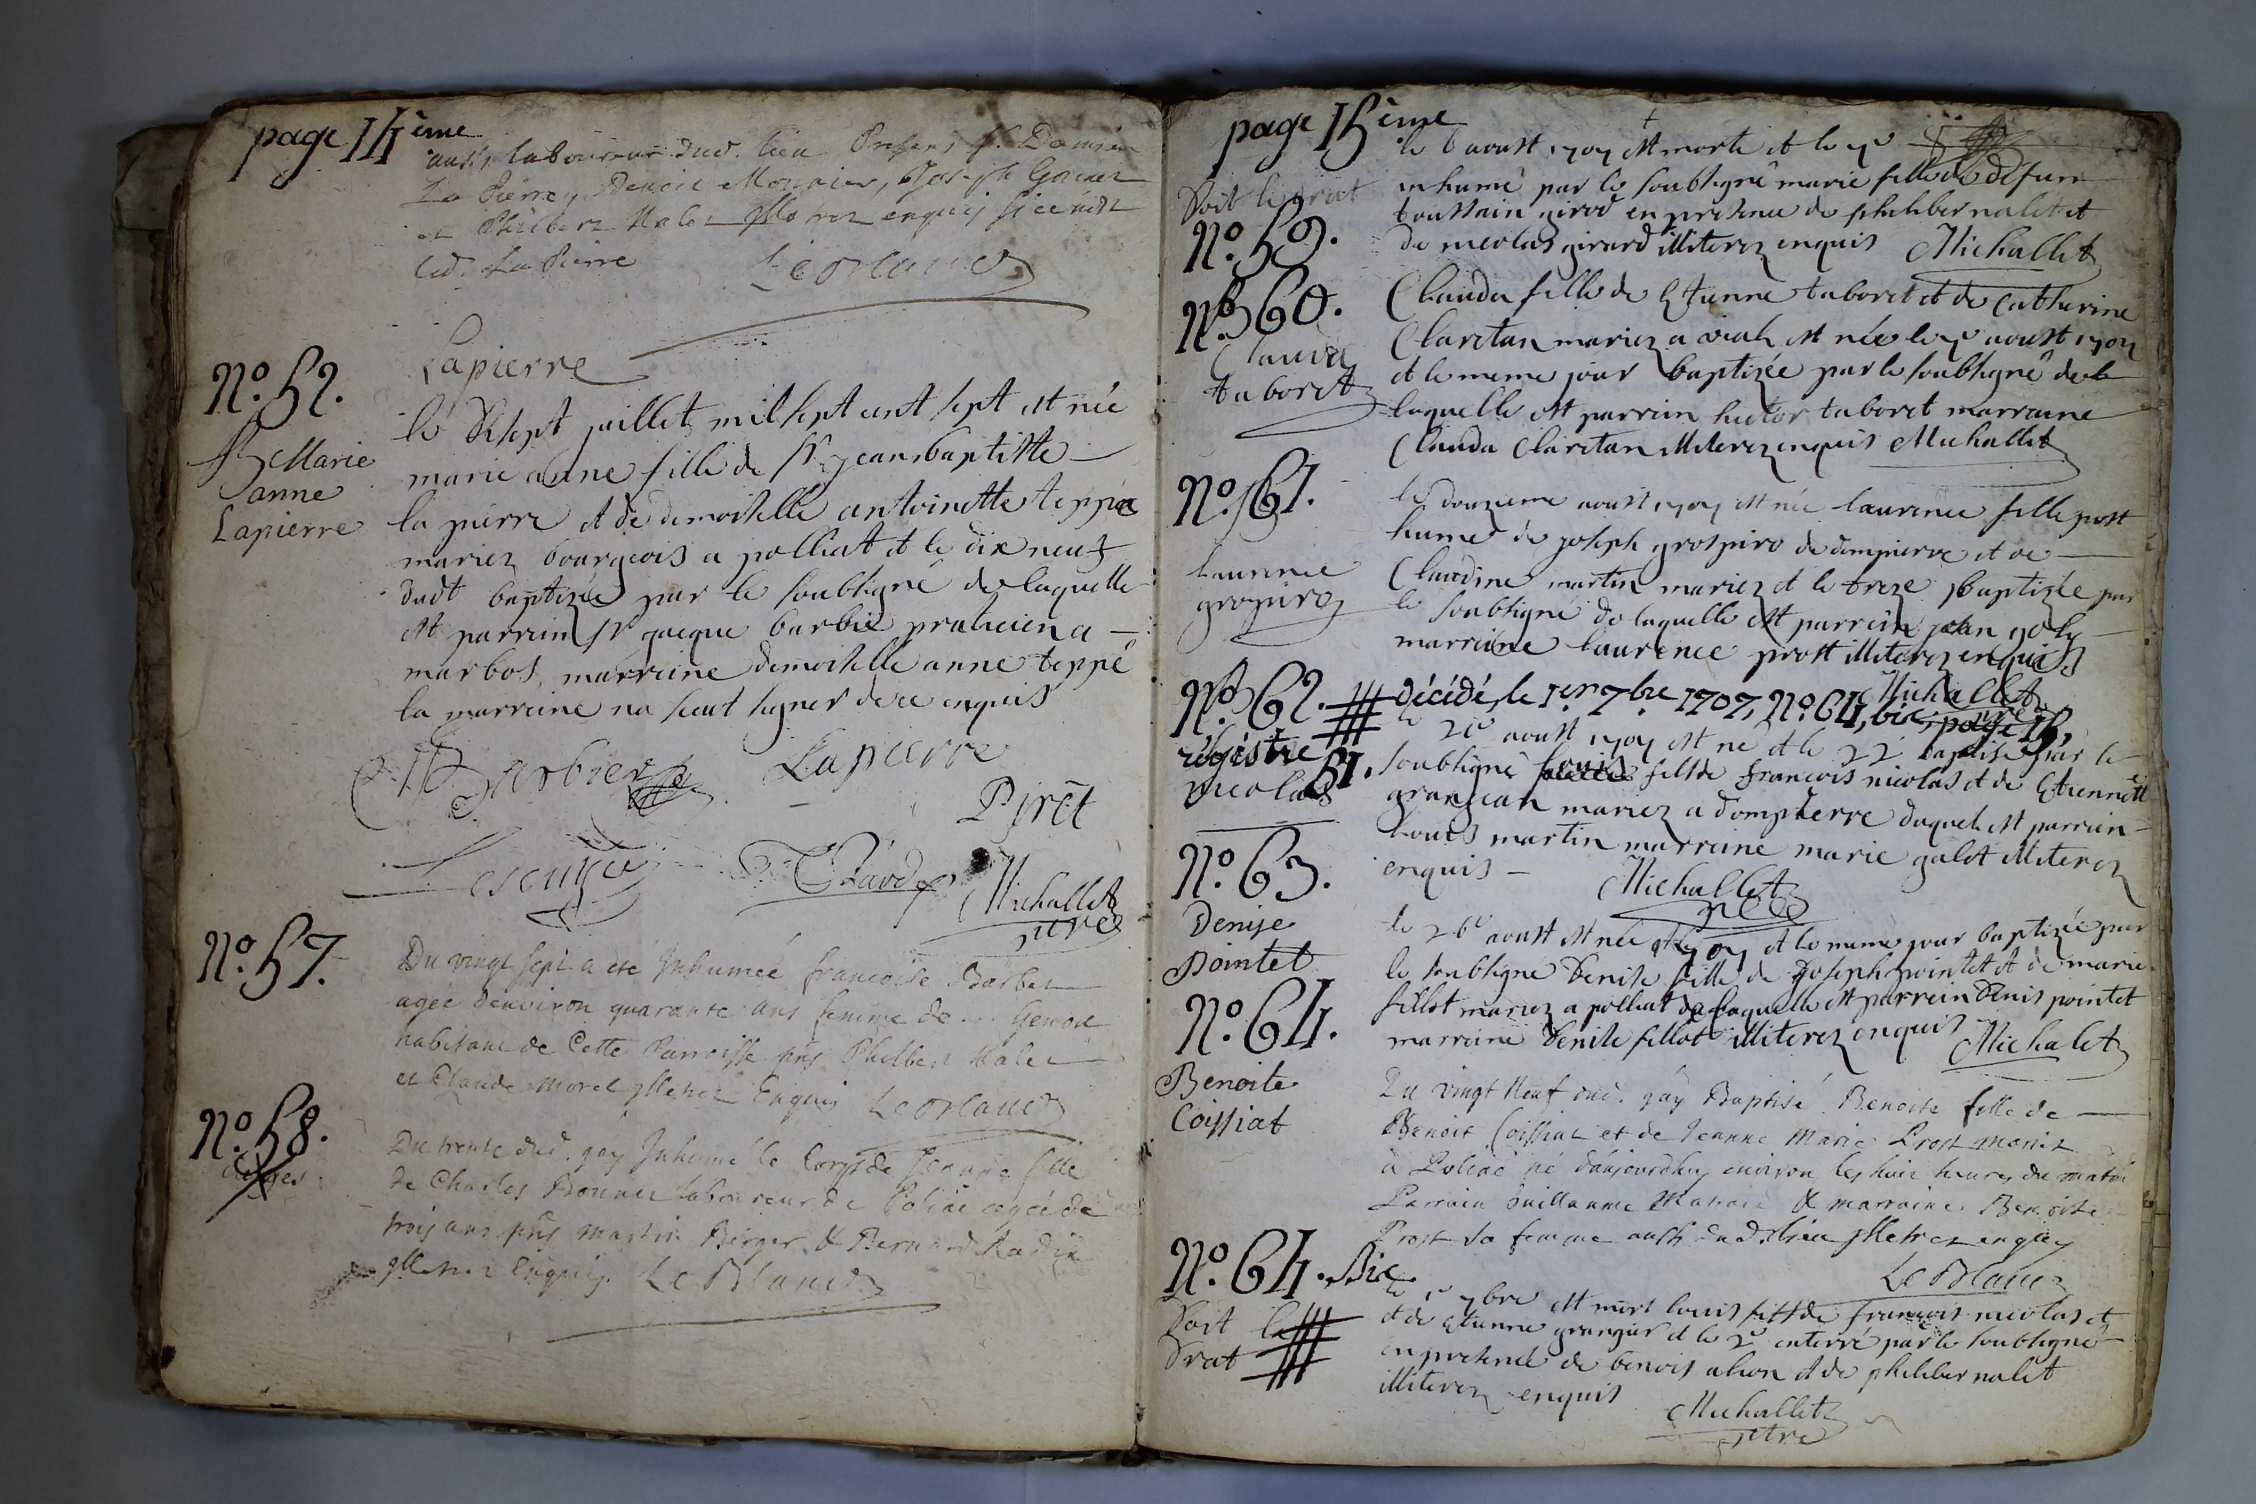 page 14ème
aussi laboureur dud. lieu Presens Sr. Damien
La Pierre, Benoit Monnier, Joseph
et Philibert Nalet yllitrez enquis si ce n'est
led. La Pierre LeBlanc
Lapierre
No. 52.
Marie
anne
Lapierre
le dixsept juillet mil sept cent sept est née
marie anne fille de sr jean baptiste
la pierre et de demoiselle antoinette teppe
mariez bourgeois a polliat et le dix neuf
dudt baptizée par le soubsigné de laquelle
est parrein sr jacque barbie praticien a
marbos, marreine demoiselle anne teppe
la marreine na sceut signer de ce enquis
Barbier Lapierre
Piret
Michallet
ptre
No. 57.
Du vingt sept a eté Inhumée francoise Barbet
agée denviron quarante ans femme de ... Genou
habitant de Cette Parroisse pns Philbert Nalet
et Claude Morel yllitrez Enquis LeBlanc
No. 58.
Du trente dud. jay Inhumé le Corps de Jeanne fille
de Charles Bonnet laboureur de Poliat agée de
trois ans pns Martin Berger & Bernard Radix
yllitrez Enquis. LeBlanc
page 15ème
le 6 aoust 1707 est morte et le 7e
inhumé par le soubsigné marie fille de defun
toussain girod en presence de philiber nalet et
de nicolas girard illiterez enquis Michallet
Soit le droit
No. 59.
No. 60.
Clauda
taboret
Clauda fille de Etienne taboret et de Catherine
Claretan mariez a viah est née le 7e aoust 1707
et le meme jour baptizée par le soubsigné de
laquelle est parrein hector taboret marreine
Clauda Claretan illiterez enquis Michallet
No. 61.
laurence
grospiro
le douzieme aoust 1707 est née laurence fille post
hume de joseph grospiro de dompierre et de
Claudine martin mariez et le treze baptizée par
le soubsigné de laquelle est parrein jean joly
marreine laurence prost illiterez enquis
Michallet
No. 62.
régistre
nicolas 51.
décédé, le 1er 7bre 1707, No. 64, bis, page 15,
le 21e aoust 1707 est né et le 22 baptisé par le
soubsigné louis fils de francois nicolas et de Etiennette
granjean mariez a dompierre duquel est parrein
louis martin marreine marie galet illiterez
enquis Michallet
ptre
No. 63.
Denise
Pointet
le 26e aoust est née 1707 et le meme jour baptizée par
le soubsigné Denise fille de Joseph pointet et de marie
fillot mariez a polliat de laquelle est parrein Denis pointet
marreine Denise fillot illiterez enquis Michalet
No. 64.
Benoite
Coissiat
Du vingt Neuf dud. jay Baptisé Benoite fille de
Benoit Coissiat et de Jeanne Marie Prost mariez
à Poliat né daujourdhuy environ les huit heures du matin
Parrain Guillaume & marraine Benoite
Prost sa femme aussi dud. lieu yllitrez enquis
LeBlanc
No. 64. Bis.
Soit le
Drat
le 1e 7bre est mort louis fils de francois nicolas et
et de etienne grangier et le 2e enterré par le soubsigné
en presence de benois alion et de philiber nalet
illiterez enquis
Michallet
ptre